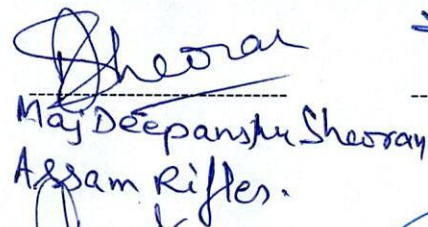 Sheoran
Maj Deepanshu Sheoran
Assam Rifles.